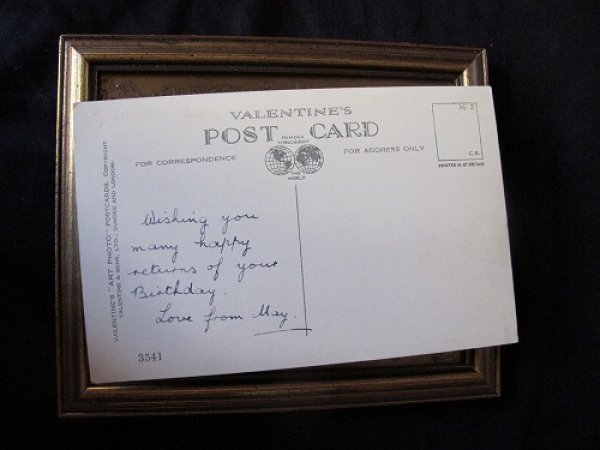 VALENTINE'S
POST CARD
FAMOUS
THROUGHOUT
THE
WORLD
FOR CORRESPONDENCE
FOR ADDRESS ONLY
C.B.
PRINTED IN GT. BRITAIN
VALENTINE'S "ART PHOTO" POSTCARDS. COPYRIGHT.
VALENTINE & SONS, LTD., DUNDEE AND LONDON.
Wishing you
many happy
returns of your
Birthday.
Love from May.
3541